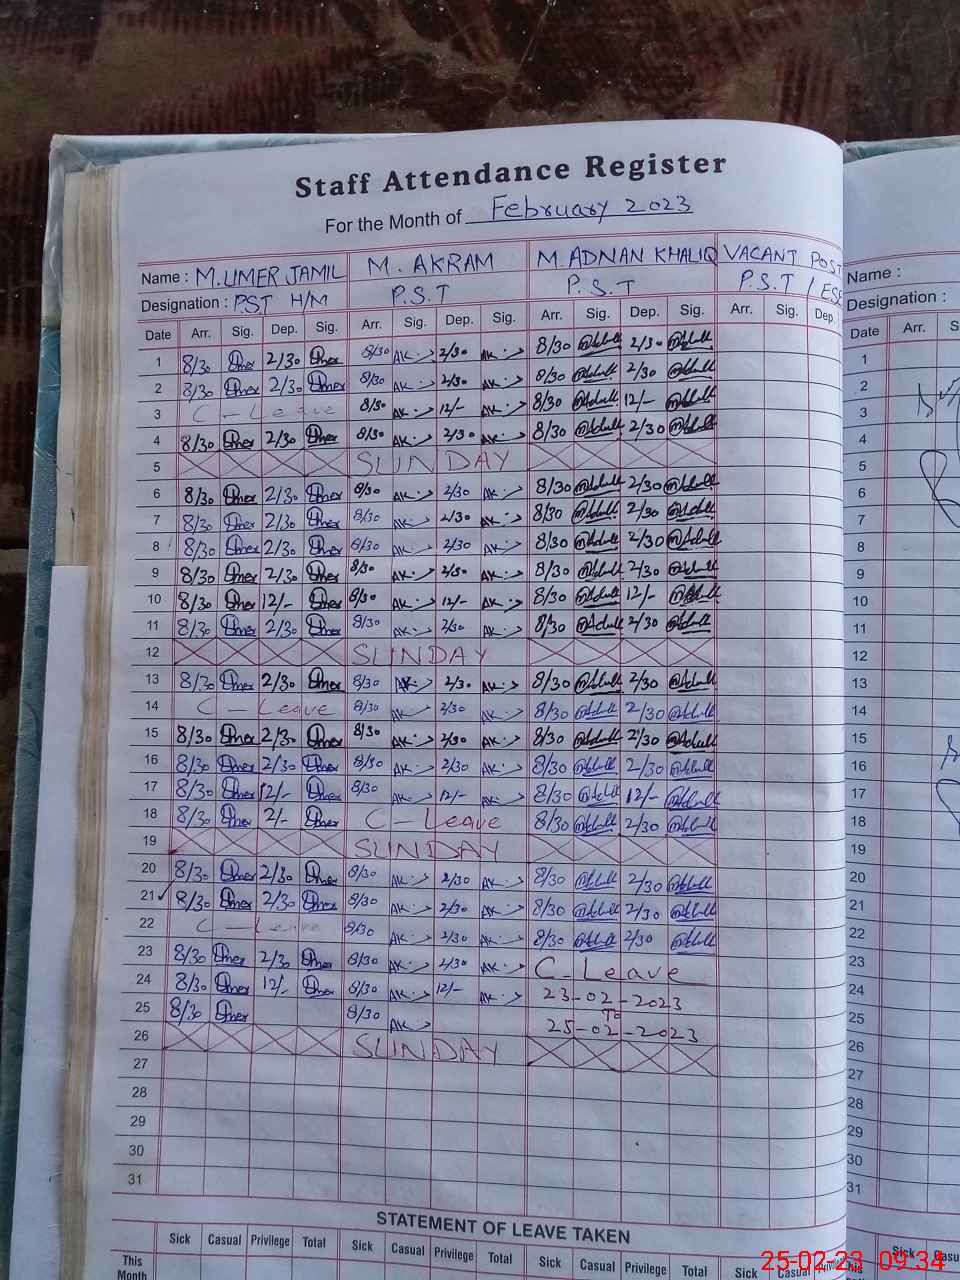 Staff Attendance Register
For the Month of February 2023
Name : M. UMER JAMIL M. AKRAM M. ADNAN KHALIQ VACANT POST
Designation : PST H/M P.S.T P.S.T P.S.T / ESE
Date Arr. Sig. Dep. Sig. Arr. Sig. Dep. Sig. Arr. Sig. Dep. Sig. Arr. Sig. Dep.
1 8/30 Umer 2/30 Umer 8/30 AK. 2/30 AK. 8/30 2/30
2 8/30 Umer 2/30 Umer 8/30 AK. 2/30 AK. 8/30 2/30
3 C - Leave 8/30 AK. 12/- AK. 8/30 12/-
4 8/30 Umer 2/30 Umer 8/30 AK. 2/30 AK. 8/30 2/30
5 SUNDAY
6 8/30 Umer 2/30 Umer 8/30 AK. 2/30 AK. 8/30 2/30
7 8/30 Umer 2/30 Umer 8/30 AK. 2/30 AK. 8/30 2/30
8 8/30 Umer 2/30 Umer 8/30 AK. 2/30 AK. 8/30 2/30
9 8/30 Umer 2/30 Umer 8/30 AK. 2/30 AK. 8/30 2/30
10 8/30 Umer 12/- Umer 8/30 AK. 12/- AK. 8/30 12/-
11 8/30 Umer 2/30 Umer 8/30 AK. 2/30 AK. 8/30 2/30
12 SUNDAY
13 8/30 Umer 2/30 Umer 8/30 AK. 2/30 AK. 8/30 2/30
14 C - Leave 8/30 AK. 2/30 AK. 8/30 2/30
15 8/30 Umer 2/30 Umer 8/30 AK. 2/30 AK. 8/30 2/30
16 8/30 Umer 2/30 Umer 8/30 AK. 2/30 AK. 8/30 2/30
17 8/30 Umer 12/- Umer 8/30 AK. 12/- AK. 8/30 12/-
18 8/30 Umer 2/- Umer C - Leave 8/30 2/30
19 SUNDAY
20 8/30 Umer 2/30 Umer 8/30 AK. 2/30 AK. 8/30 2/30
21 8/30 Umer 2/30 Umer 8/30 AK. 2/30 AK. 8/30 2/30
22 C - Leave 8/30 AK. 2/30 AK. 8/30 2/30
23 8/30 Umer 2/30 Umer 8/30 AK. 2/30 AK. C - Leave
24 8/30 Umer 12/- Umer 8/30 AK. 12/- AK. 23-02-2023
To
25 8/30 Umer 8/30 AK. 25-02-2023
26 SUNDAY
27
28
29
30
31
STATEMENT OF LEAVE TAKEN
Sick Casual Privilege Total Sick Casual Privilege Total Sick Casual Privilege Total Sick Casual
This Month
Name :
Designation :
Date Arr.
1
2
3
4
5
6
7
8
9
10
11
12
13
14
15
16
17
18
19
20
21
22
23
24
25
26
27
28
29
30
31
Sick
25-02-23 09:34